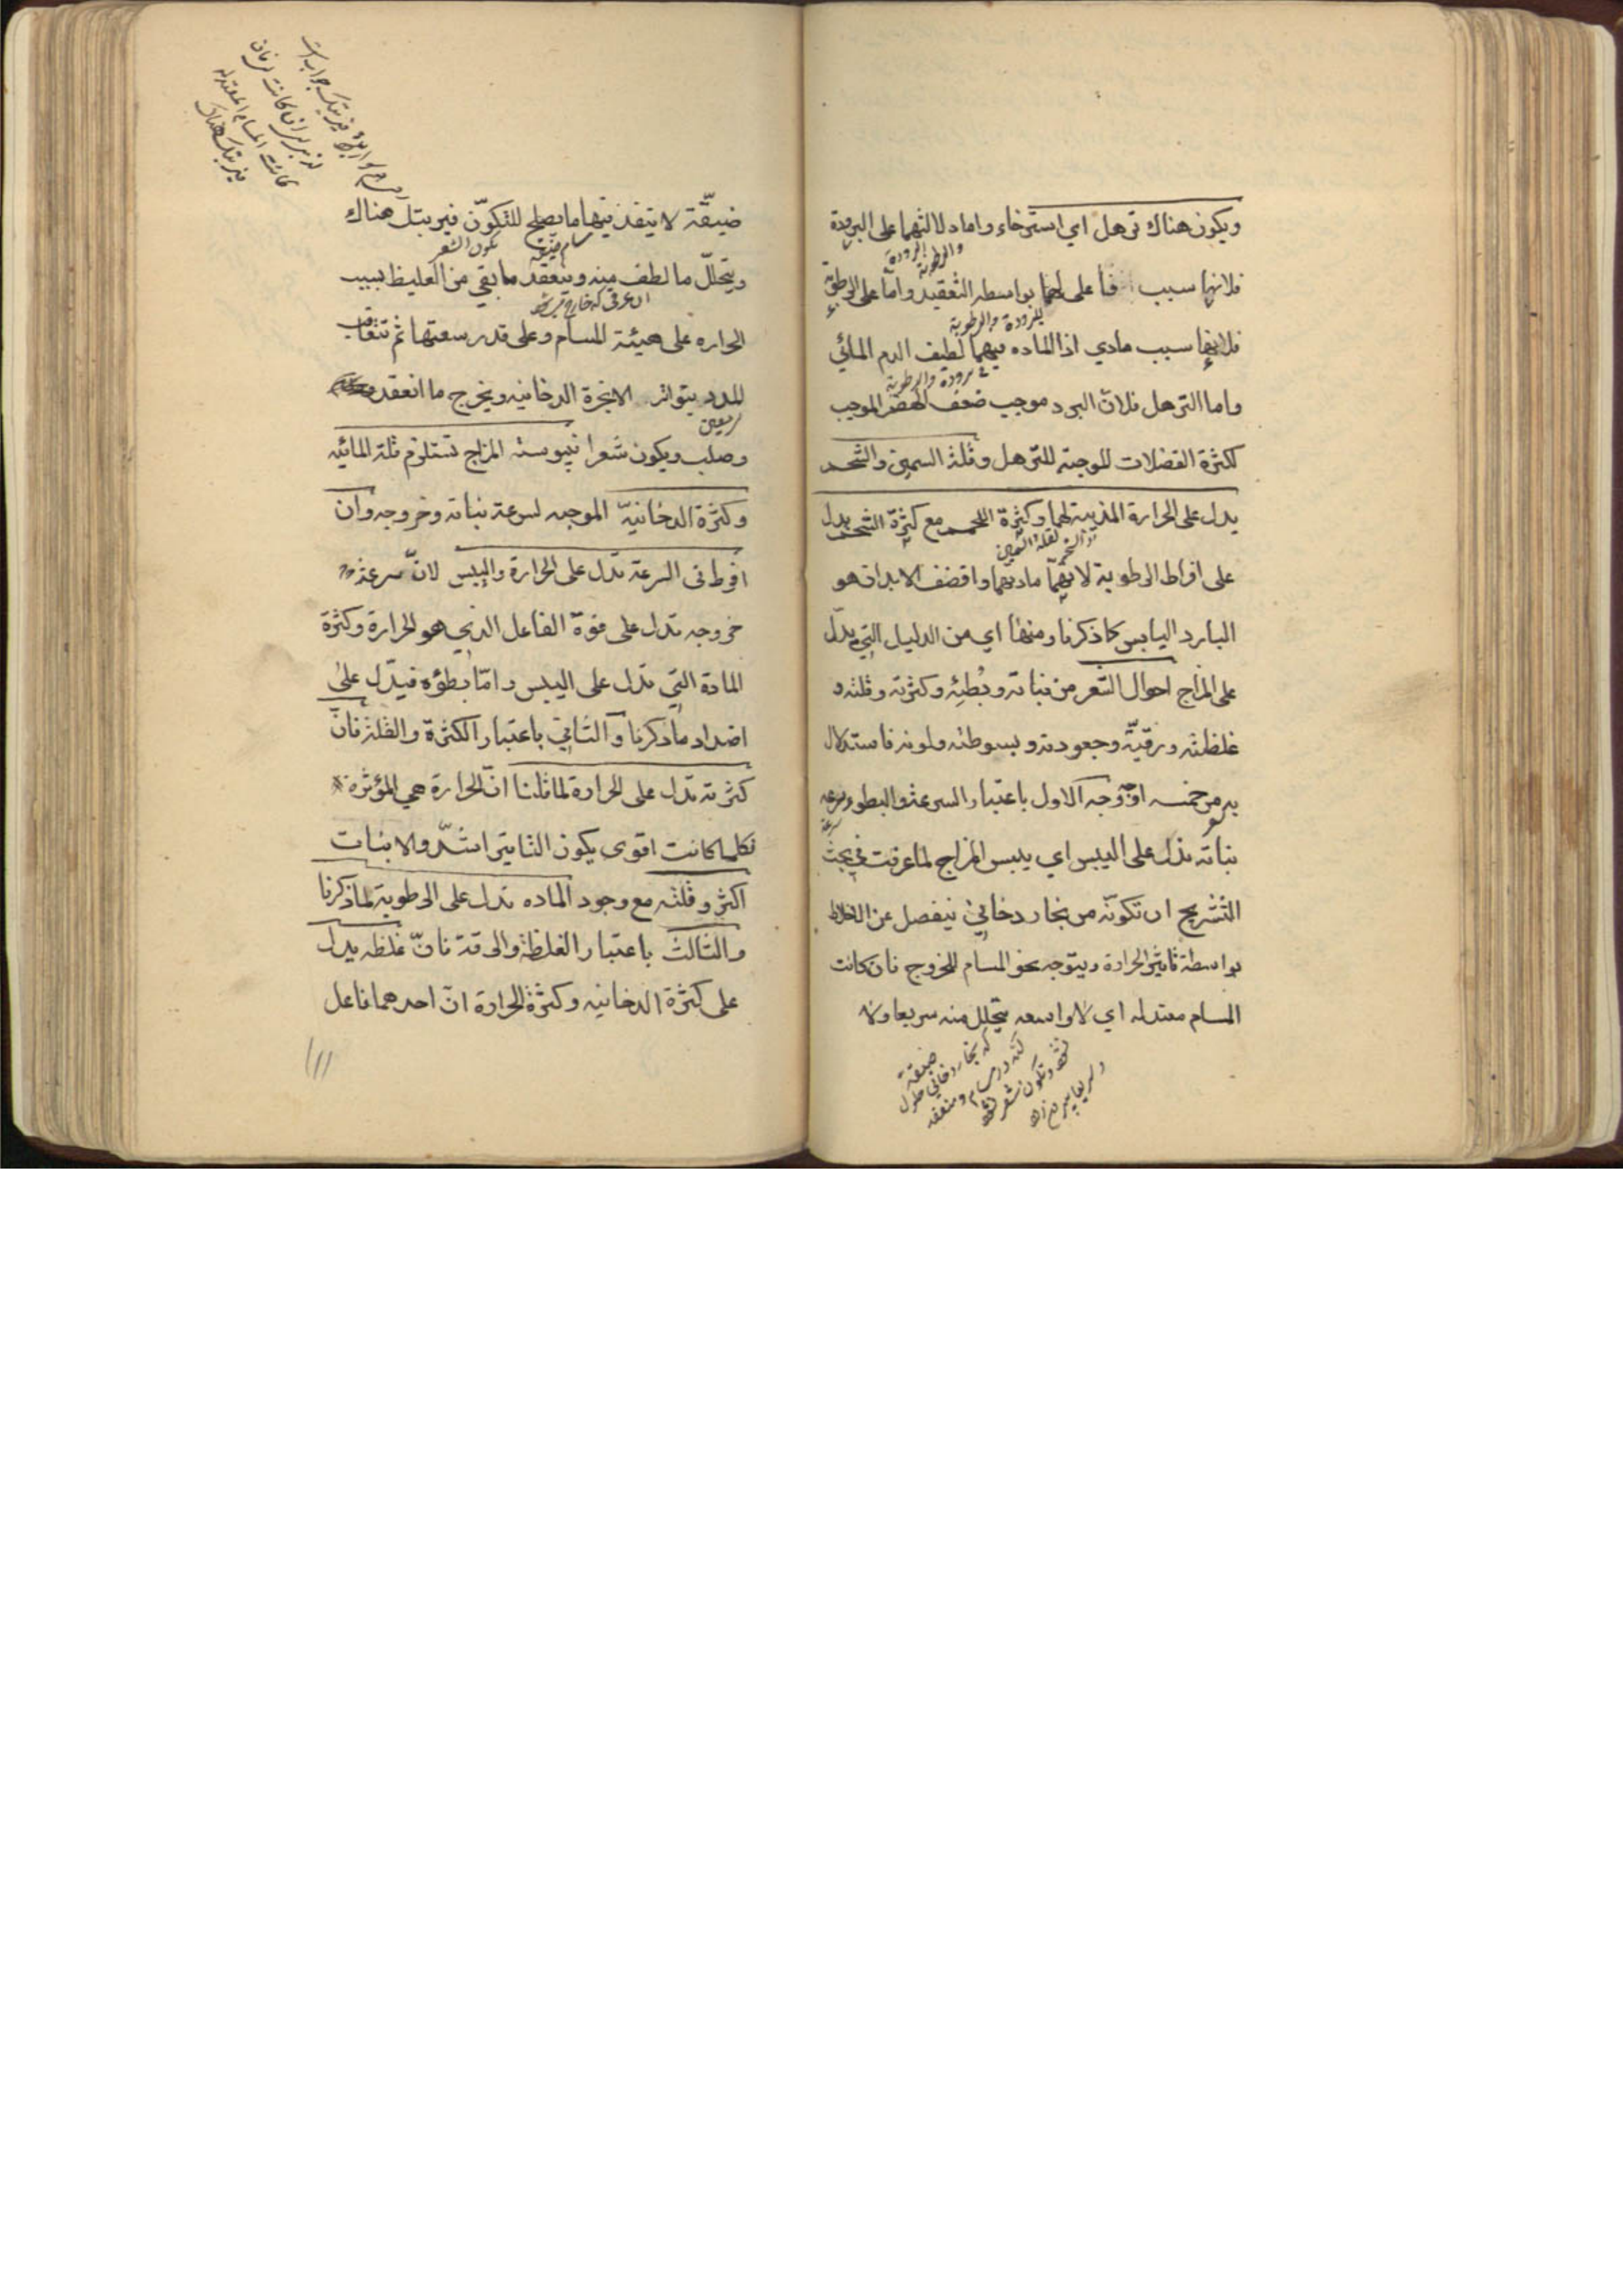 ويكون هناك ترهل اي استرخاء واما دلالتهما على البرودة
والرطوبة البرودة
فلانها سبب فاعلي لهما بواسطه التعقيد واما على الرطوبة
للبرودة والرطوبة
فلانها سبب مادي اذ الماده فيهما لطيف الدم المائي
برودة والرطوبة
واما الترهل فلان البرد موجب ضعف الهضم الموجب
لكثرة الفضلات الموجبه للترهل وقلة السمين والشحم
يدل على الحرارة المذيبة لهما وكثرة اللحم مع كثرة الشحم يدل
والشحم السمين
على افراط الرطوبة لانهما مادتهما واقضف الابدان هو
البارد اليابس كما ذكرنا ومنها اي من الدليل التي يدل
على المزاج احوال الشعر من نباته وبطئه وكثرته وقلته و
غلظته ورقيته وجعودته وبسوطته ولونه فاستدلال
به من خمسه اوجه وجه الاول باعتبار السرعة والبطوء وسرعه
نباته تدل على اليبس اي يبس المزاج لما عرفت في بحث
التشريح ان تكونه من بخار دخاني ينفصل عن الاخلاط
بواسطة تاثير الحرارة ويتوجه نحو المسام للخروج فان كانت
المسام معتدله اي لا واسعه يتحلل منه سريعا ولا
ضيقة
كه بخار دخاني
ضيقة لا ينفذ فيها ما يصلح للتكون فيرتبك هناك
مسام ضيقه تكون الشعر
ويتحلل ما لطف منه وينعقد ما بقي من الغليظ بسبب
الحراره على هيئة المسام وعلى قدر سعتها ثم تتعاقب
المدد بتواتر الابخرة الدخانيه ويخرج ما انعقد
وصلب ويكون شعرا فيبوسته المزاج تستلزم قلة المائيه
وكثرة الدخانية الموجبه لسرعة نباته وخروجه وان
افرط في السرعة تدل على الحرارة واليبس لان سرعة
خروجه تدل على قوة الفاعل الذي هو الحرارة وكثرة
المادة التي تدل على اليبس واما بطؤه فيدل على
اضداد ما ذكرنا والثاني باعتبار الكثرة والقلة فان
كثرته تدل على الحرارة لما قلنا ان الحرارة هي المؤثرة
فكلما كانت اقوى يكون التاثير اشد والانبات
اكثر وقلته مع وجود الماده تدل على الرطوبة لما ذكرنا
والثالث باعتبار الغلظة والرقة فان غلظه يدل
على كثرة الدخانيه وكثرة الحرارة ان احدهما فاعل